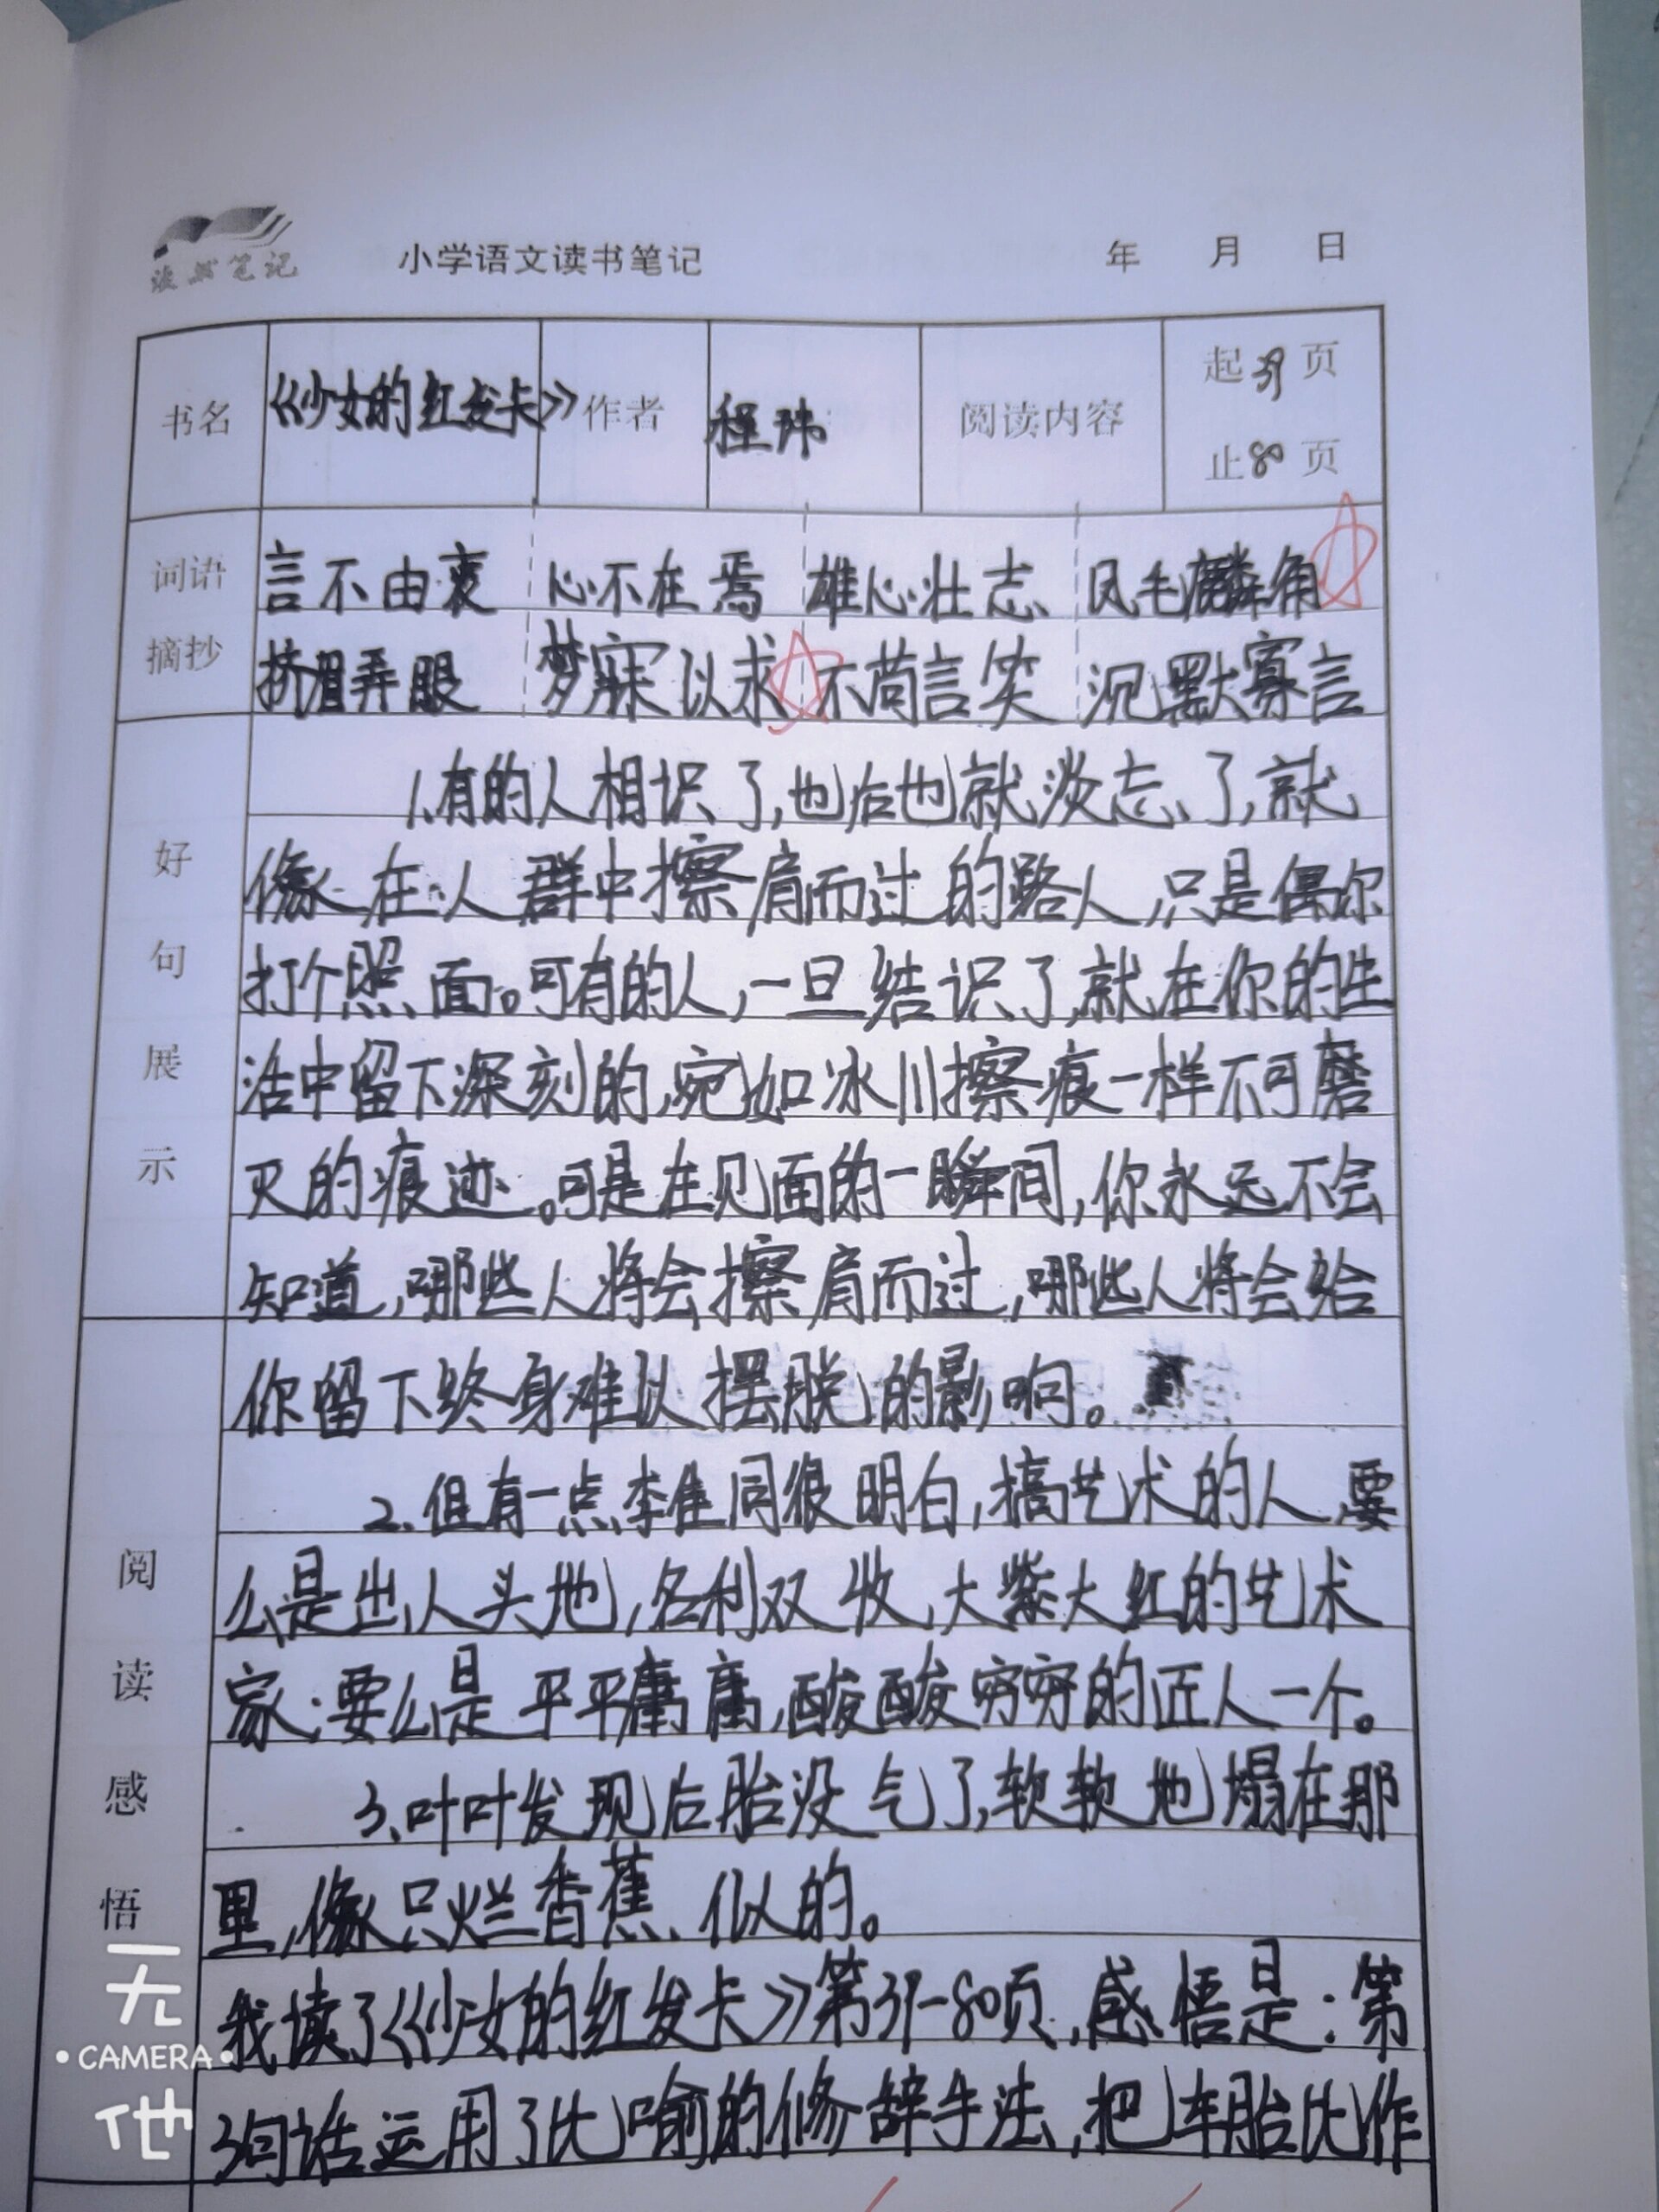 读书笔记 小学语文读书笔记 年 月 日
书名 《少女的红发卡》 作者 程玮 阅读内容 起39页
止80页
词语 言不由衷 心不在焉 雄心壮志 凤毛麟角
摘抄 挤眉弄眼 梦寐以求 不苟言笑 沉默寡言
好句展示
1.有的人相识了,也后也就淡忘了,就
像在人群中擦肩而过的路人,只是偶尔
打个照面。可有的人,一旦结识了,就在你的生
活中留下深刻的,宛如冰川擦痕一样不可磨
灭的痕迹。可是在见面的一瞬间,你永远不会
知道,哪些人将会擦肩而过,哪些人将会给
你留下终身难以摆脱的影响。
阅读感悟
2.但有一点李佳同很明白,搞艺术的人,要
么是出人头地,名利双收,大紫大红的艺术
家;要么是平平庸庸,酸酸穷穷的匠人一个。
3.叶叶发现后胎没气了,软软地塌在那
里,像只烂香蕉似的。
我读了《少女的红发卡》第39-80页,感悟是:第
3句话运用了比喻的修辞手法,把车胎比作
无
CAMERA
他